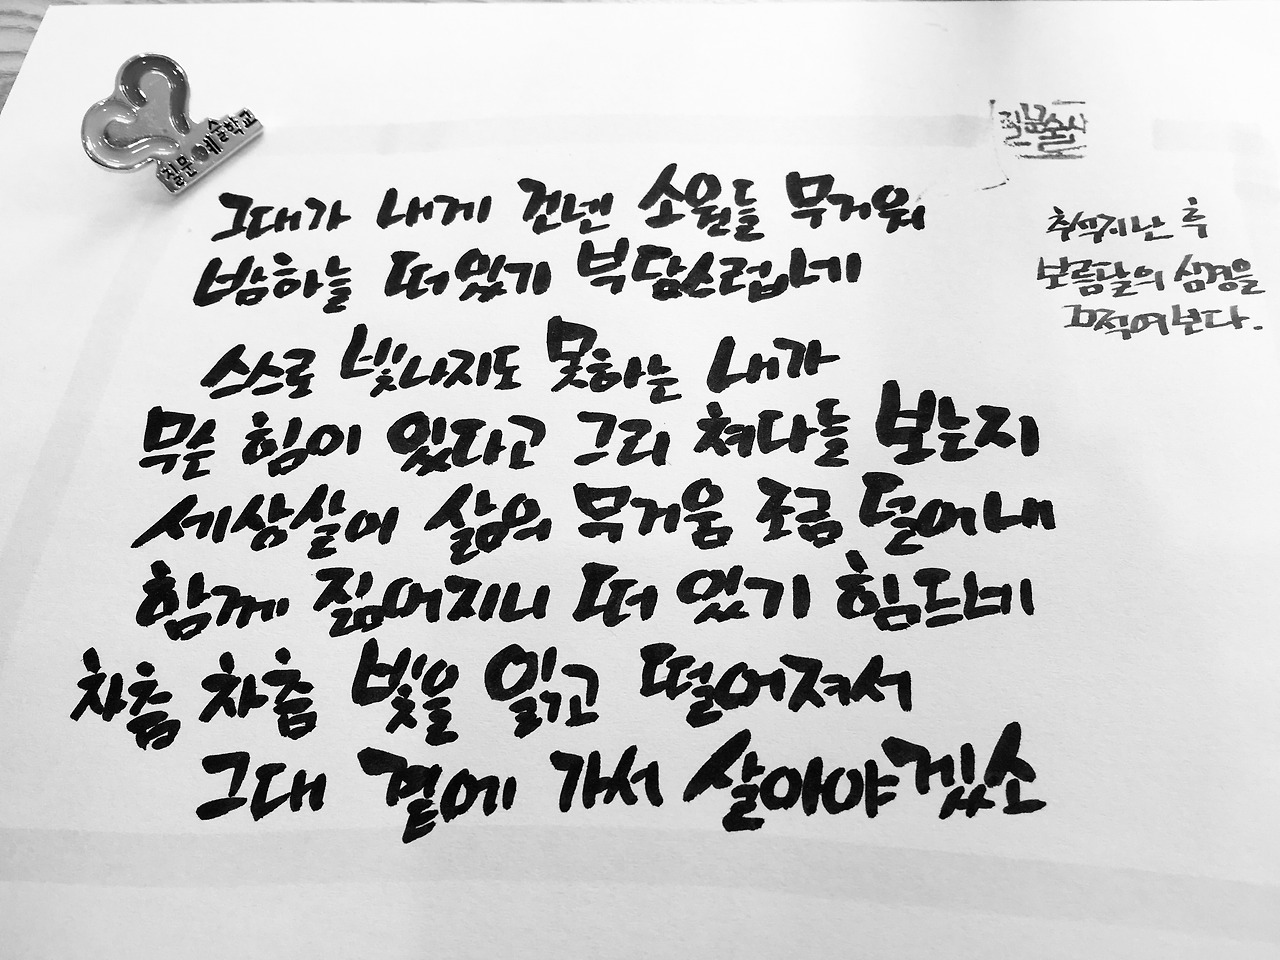 질문예술학교
질문술사
그대가 내게 건넨 소원들 무거워
밤하늘 떠있기 부담스럽네
스스로 빛나지도 못하는 내가
무슨 힘이 있다고 그리 쳐다들 보는지
세상살이 삶의 무거움 조금 덜어내
함께 짊어지니 떠 있기 힘드네
차츰 차츰 빛을 잃고 떨어져서
그대 곁에 가서 살아야겠소
추석지난 후
보름달의 심경을
끄적여보다.